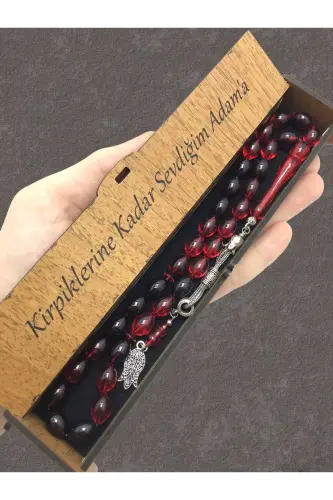 Kirpiklerine Kadar Sevdiğim Adam'a